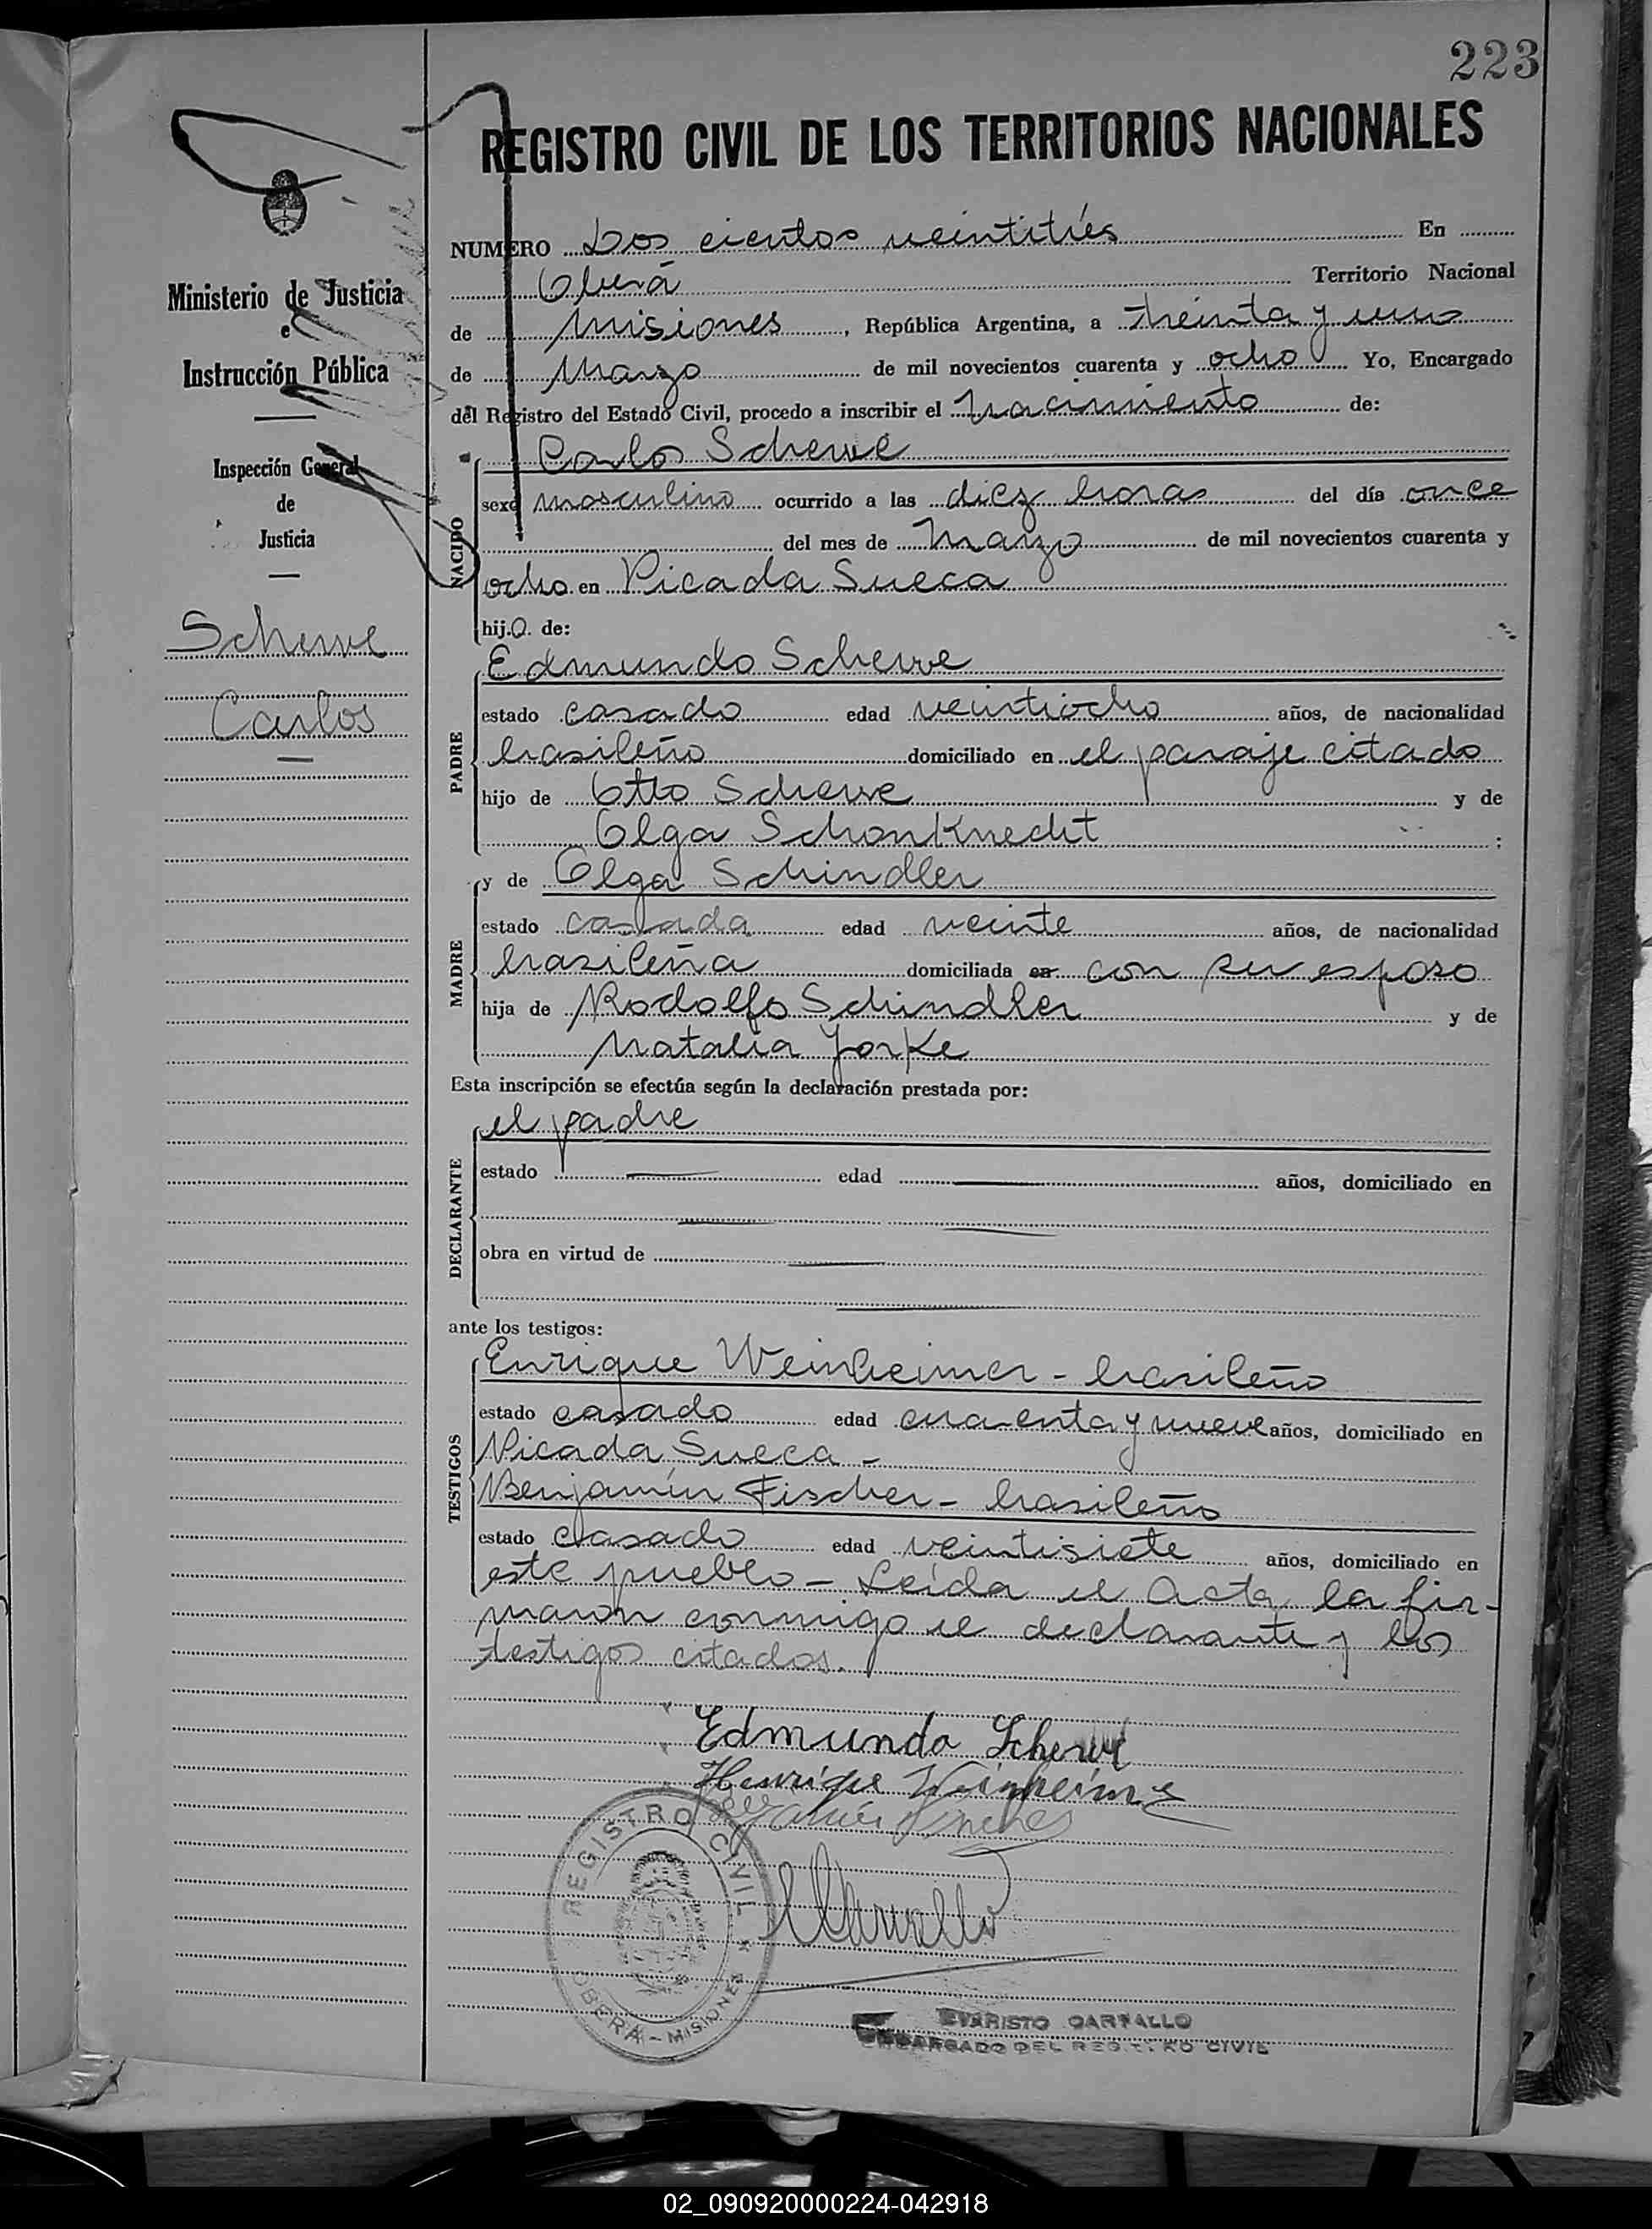 223
REGISTRO CIVIL DE LOS TERRITORIOS NACIONALES
Ministerio de Justicia
e
Instrucción Pública
Inspección General
de
Justicia
Scherve
Carlos
NUMERO Dos cientos veintitrés En
Oberá Territorio Nacional
de Misiones, República Argentina, a treinta y uno
de Marzo de mil novecientos cuarenta y ocho Yo, Encargado
del Registro del Estado Civil, procedo a inscribir el nacimiento de:
NACIDO
Carlos Scherve
sexo masculino ocurrido a las diez horas del día once
del mes de Marzo de mil novecientos cuarenta y
ocho en Picada Sueca
hijo de:
PADRE
Edmundo Scherve
estado casado edad veintiocho años, de nacionalidad
brasileño domiciliado en el paraje citado
hijo de Otto Scherve y de
Olga SchonKnecht ;
MADRE
y de Olga Schindler
estado casada edad veinte años, de nacionalidad
brasileña domiciliada en con su esposo
hija de Rodolfo Schindler y de
Natalia Jorke
Esta inscripción se efectúa según la declaración prestada por:
DECLARANTE
el padre
estado edad años, domiciliado en
obra en virtud de
ante los testigos:
TESTIGOS
Enrique Weinheimer - brasileño
estado casado edad cuarenta y nueve años, domiciliado en
Picada Sueca -
Benjamín Fischer - brasileño
estado casado edad veintisiete años, domiciliado en
este pueblo - Leída el Acta, la fir-
maron conmigo el declarante y los
testigos citados.
Edmundo Scherve
Henrique
REGISTRO CIVIL
OBERÁ - MISIONES
EVARISTO CARVALLO
ENCARGADO DEL REGISTRO CIVIL
02_090920000224-042918